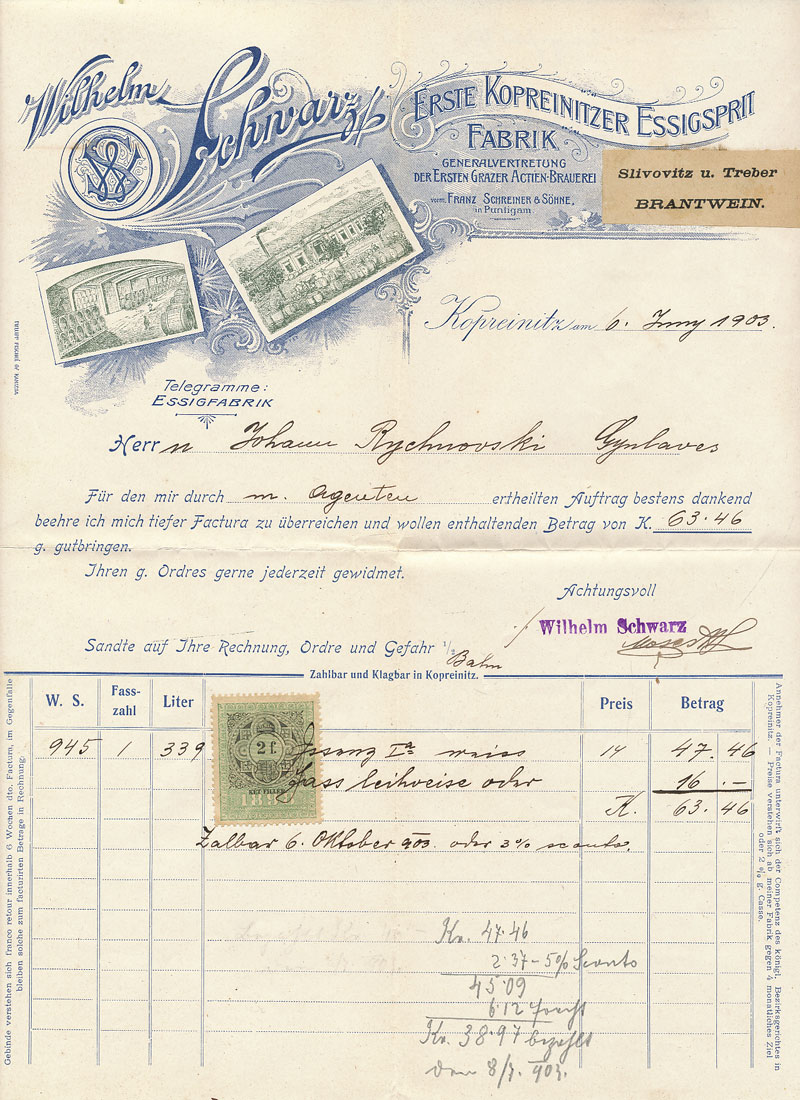 Wilhelm Schwarz
WS
ERSTE KOPREINITZER ESSIGSPRIT
FABRIK
GENERALVERTRETUNG
DER ERSTEN GRAZER ACTIEN-BRAUEREI
vorm. FRANZ SCHREINER & SÖHNE,
in Puntigam
Slivovitz u. Treber
BRANTWEIN.
Kopreinitz am 6. Juny 1903.
Telegramme:
ESSIGFABRIK
Herrn Johann Rychnovski Gyulaves
Für den mir durch m. Agenten ertheilten Auftrag bestens dankend
beehre ich mich tiefer Factura zu überreichen und wollen enthaltenden Betrag von K. 63·46
g. gutbringen.
Ihren g. Ordres gerne jederzeit gewidmet.
Achtungsvoll
Wilhelm Schwarz
Sandte auf Ihre Rechnung, Ordre und Gefahr ½ Bahn
Zahlbar und Klagbar in Kopreinitz.
W. S. Fass-zahl Liter Preis Betrag
945 1 339 Essenz Iª weiss 14 47.46
2 f.
Fass leihweise oder 16.-
KÉT FILLÉR
K. 63.46
Zalbar 6. Oktober 903. oder 3% sconto.
Kr. 47·46
2·37 - 5% Sconto
45·09
6.12 Fracht
Kr. 38·97 bezahlt
den 8/7. 903.
Gebinde verstehen sich franco retour innerhalb 6 Wochen dto. Factura, im Gegenfalle
bleiben solche zum facturirten Betrage in Rechnung.
Annehmer der Factura unterwirft sich der Competenz des königl. Bezirksgerichtes in
Kopreinitz. — Preise verstehen sich ab meiner Fabrik gegen 4 monatliches Ziel
oder 2 % g. Casse.